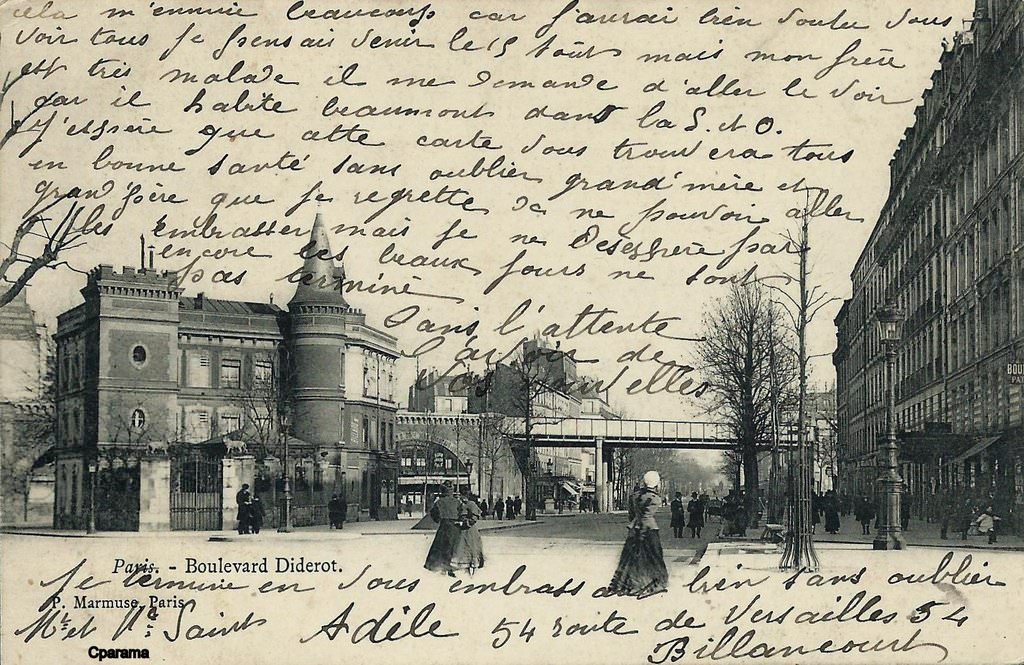 cela m'ennuie beaucoup car j'aurai bien voulu vous
voir tous je pensais venir le 15 Août mais mon frère
est très malade il me demande d'aller le voir
car il habite beaumont dans la S. et O.
J'espère que cette carte vous trouvera tous
en bonne santé sans oublier grand'mère et
grand père que je regrette de ne pouvoir aller
les embrasser mais je ne désespère pas
encore les beaux jours ne sont
pas terminé
Dans l'attente
d'avoir de
vos nouvelles
BOU
Paris. - Boulevard Diderot.
Je termine en vous embrassant bien sans oublier
P. Marmuse, Paris
Mr et Me Saint
Adèle 54 route de Versailles 54
Billancourt
Cparama